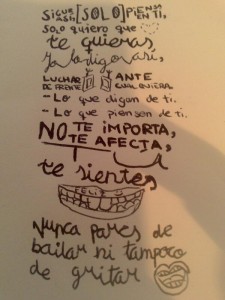 SIGUE
ASÍ, [SOLO] PIENSA
EN TI,
SOLO quiero que
te quieras,
Yo lo digo así,
LUCHAR DE FRENTE ANTE CUALQUIERA
- Lo que digan de ti.
- Lo que piensen de ti.
NO TE IMPORTA,
TE AFECTA,
te sientes
FELIZ
Nunca pares de
bailar ni tampoco
de gritar